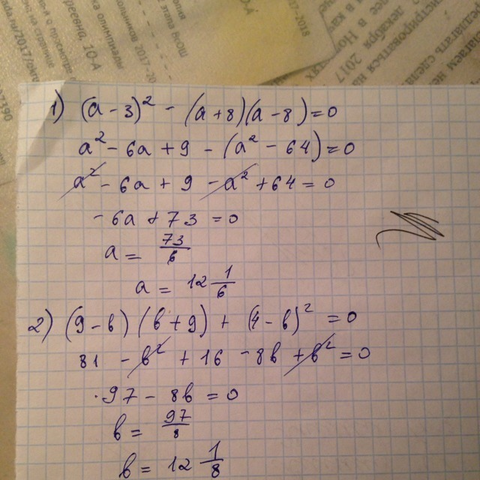 1) (a - 3)² - (a + 8)(a - 8) = 0
a² - 6a + 9 - (a² - 64) = 0
a² - 6a + 9 - a² + 64 = 0
- 6a + 73 = 0
a = 73/6
a = 12 1/6
2) (9 - b)(b + 9) + (4 - b)² = 0
81 - b² + 16 - 8b + b² = 0
97 - 8b = 0
b = 97/8
b = 12 1/8